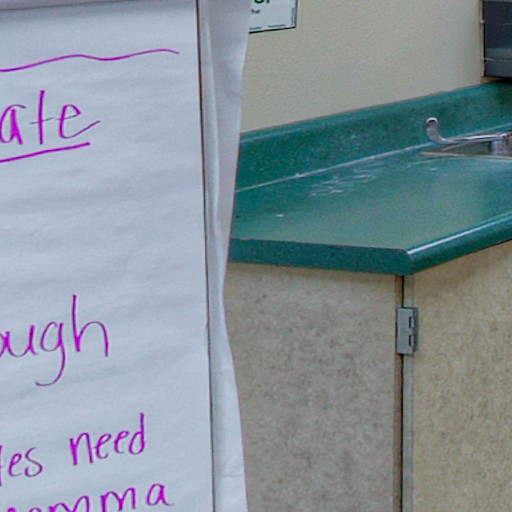 ate
ough
tes need
momma